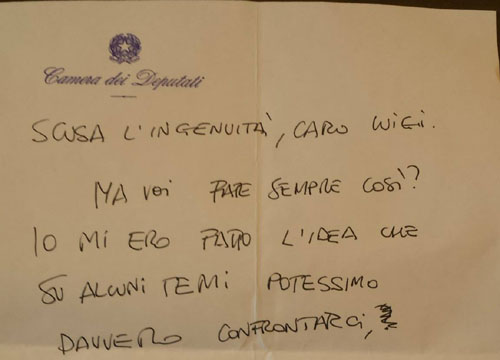 Camera dei Deputati
SCUSA L'INGENUITÀ, CARO LUIGI.
MA VOI FATE SEMPRE COSÌ?
IO MI ERO FATTO L'IDEA CHE
SU ALCUNI TEMI POTESSIMO
DAVVERO CONFRONTARCI,